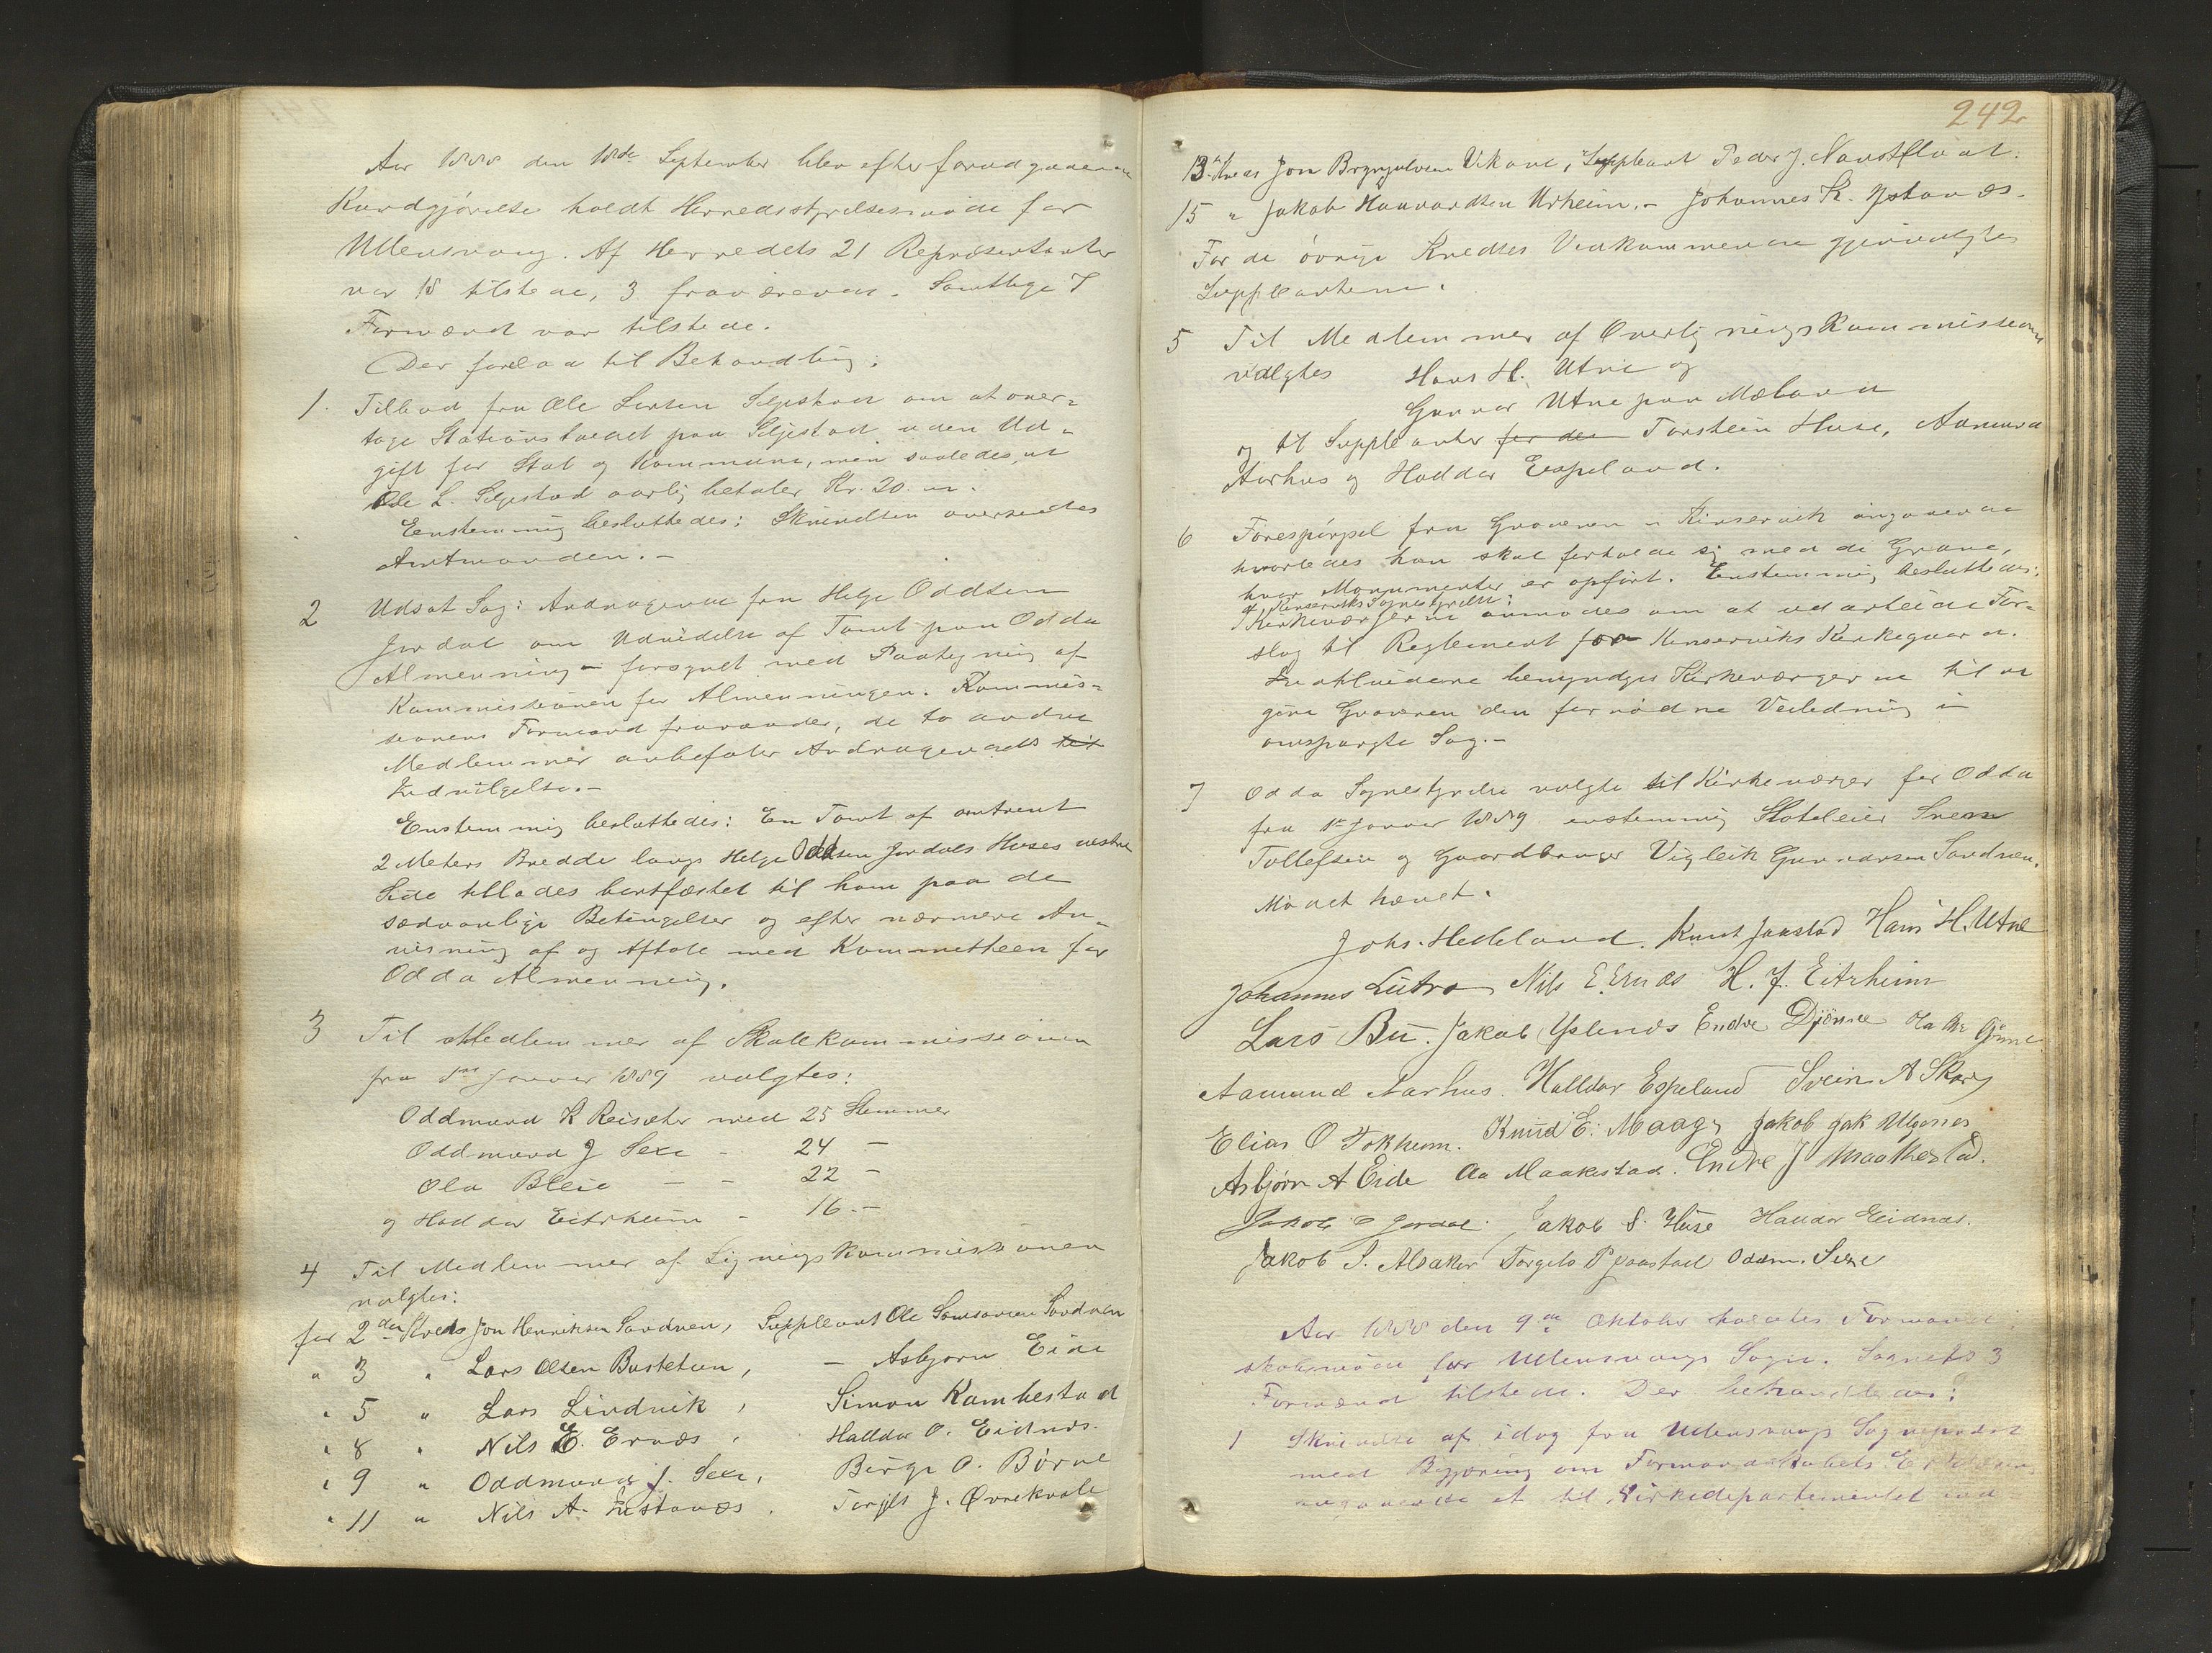 Aar 1888 den 18de September blev efter forudgaaende
Kundgjörelse holdt Herredsstyrelsesmöde for
Ullensvang. Af Herredets 21 Repræsentanter
var 18 tilstede, 3 fraværende. Samtlige 7
Formænd var tilstede.
Der forelaa til Behandling:
1. Tilbud fra Ole Larsen Seljestad om at over-
tage Stationsholdet paa Seljestad uden Ud-
gift for Stat og Kommune, men saaledes, at
Ole L. Seljestad aarlig betaler Kr. 20.
Enstemmig besluttedes: Skrivelsen oversendes
Amtmanden.-
2 Udsat Sag: Andragende fra Helge Oddsen
Jordal om Udvidelse af Tomt paa Odda
Almenning - forsynet med Paategning af
Kommissionen for Almenningen. Kommis-
sionens Formand fraværende, de to andre
Medlemmer anbefaler Andragendets til
Indvilgelse.-
Enstemmig besluttedes: En Tomt af omtrent
2 Meters Bredde langs Helge Oddsen Jordals Huses vestre
Side tillades bortfæstet til ham paa de
sædvanlige Betingelser og efter nærmere An-
visning af og Aftale med Kommitteen for
Odda Almenning.
3 Til Medlemmer af Skolekommissionen
fra 1ste Januar 1889 valgtes:
Oddmund K Reisæter med 25 Stemmer
Oddmund J Sexe - 24 -
Ola Bleie - - 22 -
og Halldor Eitrheim - 16 -
4 Til Medlemmer af Ligningskommissionen
valgtes:
for 2den Kreds Jon Henriksen Sandven, Suppleant Ole Samsonsen Sandven
" 3 " Lars Olsen Bustetun, - Asbjørn Eide
" 5 " Lars Lindvik, Simon Kambestad
" 8 " Nils E. Ernæs, Halldor O. Eidnæs.
" 9 " Oddmund J. Sexe, Børge O. Børve
" 11 " Nils A. Istanæs. Torjils J. Øvrekvale
242
13. Kreds Jon Brynjulvsen Vikane, Suppleant Peder J. Naustflaat.
15 " Jakob Haavardsen Urheim. - Johannes K. Ystanæs.
For de övrige Kredses Vedkommende gjenvalgtes
Suppleanterne.
5 Til Medlemmer af Overligningskommissionen
valgtes Hans H. Utne og
Gunnar Utne paa Mæland
og til Suppleanter for den Torstein Huse, Aamund
Aarhus og Halldor Espeland.
6 Forespörgsel fra Graveren i Kinservik angaaende
hvorledes han skal forholde sig med de Grave,
hvor Monumenter er opfört. Enstemmig besluttedes:
af Kinserviks Sognestyrelse:
Kirkeværgerne anmodes om at udarbeide For-
slag til Reglement for Kinserviks Kirkegaard.
Indtilvidere bemyndiges Kirkeværgerne til at
give Graveren den fornödne Veiledning i
omspurgte Sag.-
7 Odda Sognestyrelse valgte til Kirkeværger for Odda
fra 1ste Januar 1889 enstemmig Hoteleier Svend
Tollefsen og Gaardbruger Vigleik Gunnarsen Sandven.
Mödet hævet.
Johs. Helleland. Knut Jaastad Hans H. Utne
Johannes Lutro Nils E Ernæs H. J. Eitrheim
Lars Bu. Jakob Yslends Endre Djönne
Aamund Aarhus. Halldor Espeland Svein A Skare
Elias O Tokheim. Knud E. Maage Jakob Jak
Asbjørn A Eide Aa Maakestad. Endre J Maakestad.
Jakob O Jordal. Jakob S. Huse Halldor Eidnæs.
Jakob S. Alsaker Torgels P Jaastad Oddm. Sexe
Aar 1888 den 9de Oktober holdtes Formand-
skabsmöde for Ullensvangs Sogn. Sognets 3
Formænd tilstede. Der behandledes:
1 Skrivelse af idag fra Ullensvangs Sogneprest
med Begjæring om Formandskabets Erklæring
angaaende et til Kirkedepartementet ind-